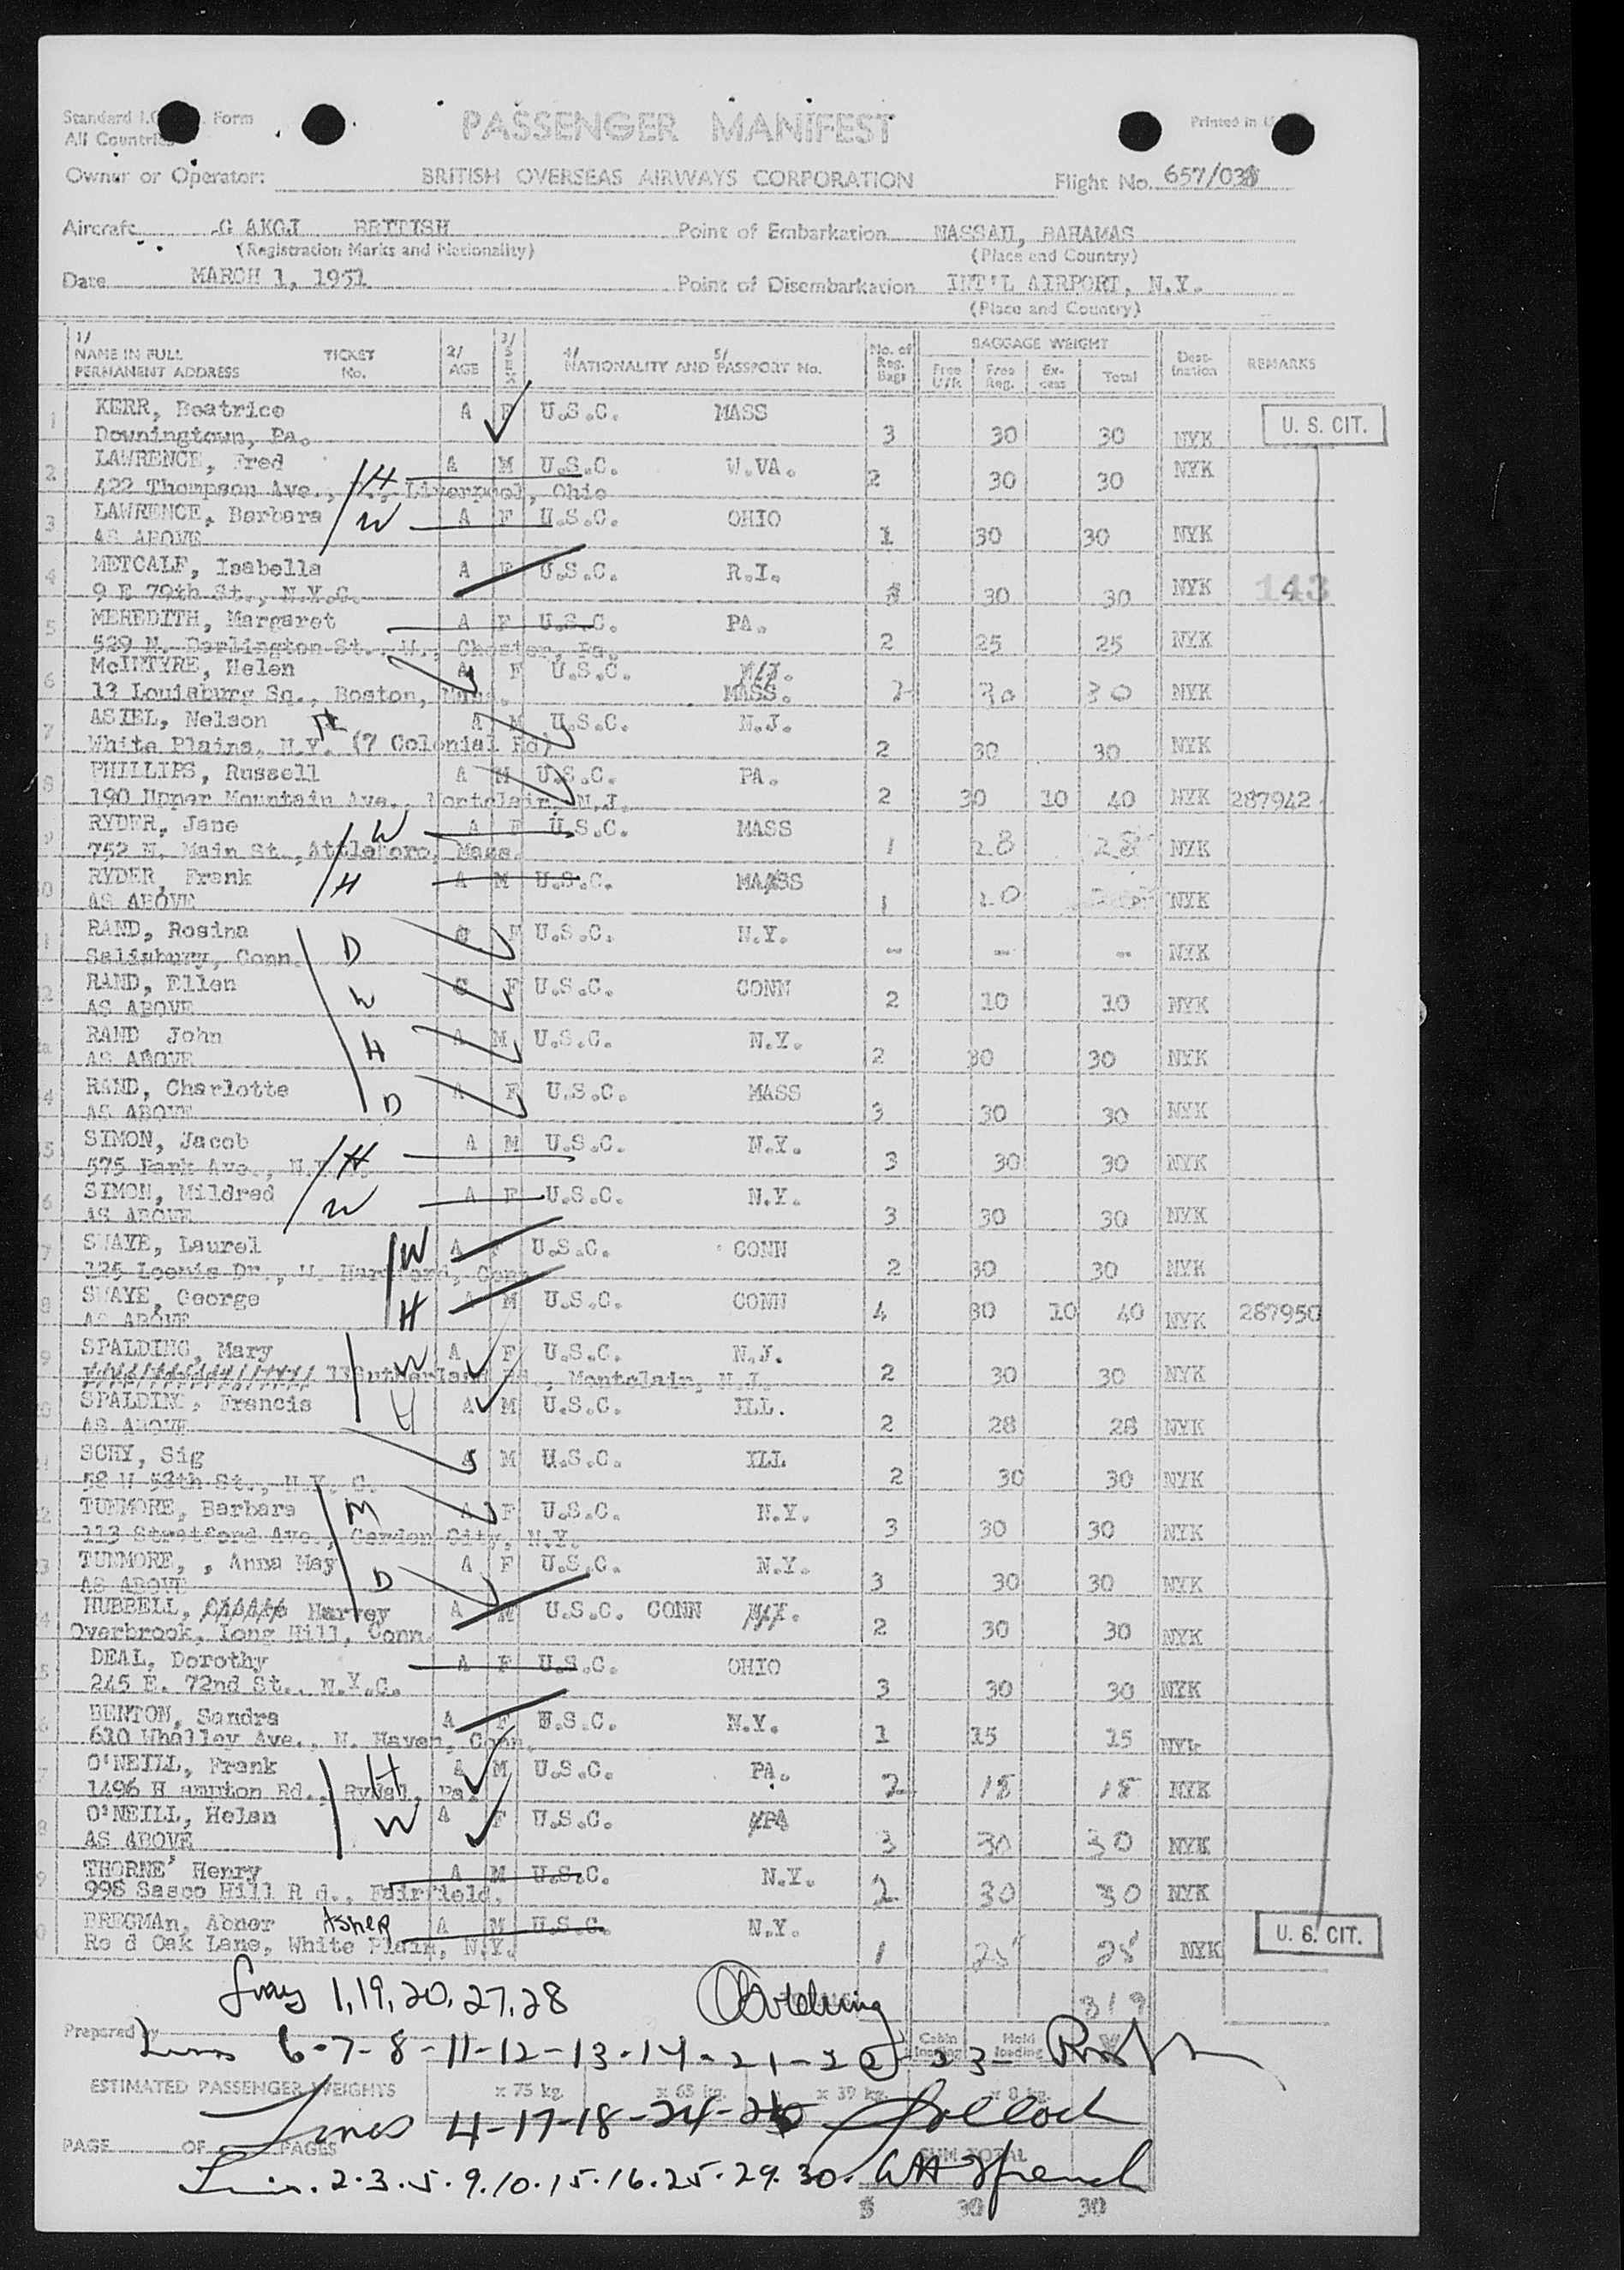 Standard I. Form
All Countries
PASSENGER MANIFEST
Printed in
Owner or Operator: BRITISH OVERSEAS AIRWAYS CORPORATION Flight No. 657/03
Aircraft G AKGJ BRITISH Point of Embarkation NASSAU, BAHAMAS
(Registration Marks and Nationality) (Place and Country)
Date MARCH 1, 1951 Point of Disembarkation INT'L AIRPORT, N.Y.
(Place and Country)
1/ NAME IN FULL PERMANENT ADDRESS TICKET No. 2/ AGE 3/ SEX 4/ NATIONALITY AND 5/ PASSPORT No. No. of Reg. Bags BAGGAGE WEIGHT Free U/K Free Reg. Ex-cess Total Dest-ination REMARKS
1 KERR, Beatrice A F U.S.C. MASS U. S. CIT.
Downingtown, Pa. 3 30 30 NYK
2 LAWRENCE, Fred H A M U.S.C. W.VA. 2 30 30 NYK
422 Thompson Ave., Liverpool, Ohio
3 LAWRENCE, Barbara W A F U.S.C. OHIO 1 30 30 NYK
AS ABOVE
4 METCALF, Isabella A F U.S.C. R.I. 30 30 NYK 143
9 E 79th St., N.Y.C.
5 MEREDITH, Margaret A F U.S.C. PA. 2 25 25 NYK
529 N. Darlington St., W., Chester, Pa.
6 McINTYRE, Helen A F U.S.C. MASS. 2 30 30 NYK
13 Louisburg Sq., Boston, Mass.
7 ASIEL, Nelson Jr A M U.S.C. N.J. 2 30 30 NYK
White Plains, N.Y. (7 Colonial Rd)
8 PHILLIPS, Russell A M U.S.C. PA. 2 30 10 40 NYK 287942
190 Upper Mountain Ave., Montclair, N.J.
9 RYDER, Jane W A F U.S.C. MASS 1 28 28 NYK
752 N. Main St., Attleboro, Mass.
10 RYDER, Frank H A M U.S.C. MASS 1 20 NYK
AS ABOVE
11 RAND, Rosina D C F U.S.C. N.Y. - - - NYK
Salisbury, Conn.
12 RAND, Ellen W C F U.S.C. CONN 2 10 10 NYK
AS ABOVE
RAND John H A M U.S.C. N.Y. 2 30 30 NYK
AS ABOVE
14 RAND, Charlotte D A F U.S.C. MASS 3 30 30 NYK
AS ABOVE
15 SIMON, Jacob H A M U.S.C. N.Y. 3 30 30 NYK
575 Park Ave.,
16 SIMON, Mildred W A F U.S.C. N.Y. 3 30 30 NYK
AS ABOVE
17 SWAYE, Laurel W A F U.S.C. CONN 2 30 30 NYK
125 Loomis Dr., W. Hartford, Conn
18 SWAYE, George H A M U.S.C. CONN 4 30 10 40 NYK 287950
AS ABOVE
19 SPALDING, Mary W A F U.S.C. N.J. 2 30 30 NYK
Sutherland Rd., Montclair, N.J.
20 SPALDING, Francis H A M U.S.C. ILL. 2 28 28 NYK
AS ABOVE
21 SCHY, Sig A M U.S.C. ILL 2 30 30 NYK
58 W 58th St., N.Y.C.
22 TUNMORE, Barbara M A F U.S.C. N.Y. 3 30 30 NYK
113 Stratford Ave., Garden City, N.Y.
23 TUNMORE, , Anna May D A F U.S.C. N.Y. 3 30 30 NYK
AS ABOVE
24 HUBBELL, Harvey A M U.S.C. CONN 2 30 30 NYK
Overbrook, Long Hill, Conn.
25 DEAL, Dorothy A F U.S.C. OHIO 3 30 30 NYK
245 E. 72nd St., N.Y.C.
26 BENTON, Sandra A F U.S.C. N.Y. 1 15 15 NYK
610 Whalley Ave., N. Haven, Conn.
27 O'NEILL, Frank H A M U.S.C. PA. 2 18 18 NYK
1496 H ampton Rd., Rydal, Pa.
28 O'NEILL, Helen W A F U.S.C. PA 3 30 30 NYK
AS ABOVE
29 THORNE Henry A M U.S.C. N.Y. 2 30 30 NYK
998 Sasco Hill R d., Fairfield,
30 BREGMAn, Abner Asher A M U.S.C. N.Y. 1 25 25 NYK U. S. CIT.
Re d Oak Lane, White Plain, N.Y.
1, 19, 20, 27, 28 319
Prepared by 6-7-8-11-12-13-14-21-22-23- Cabin loading Hold loading
ESTIMATED PASSENGER WEIGHTS x 75 kg. x 65 kg. x 39 kg. x 8 kg.
4-17-18-24-26
PAGE OF PAGES SUM TOTAL
2.3.5.9.10.15.16.25.29.30.
30 30